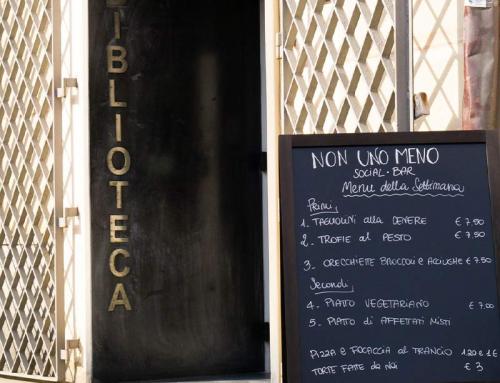 BIBLIOTECA
NON UNO MENO
SOCIAL • BAR
Menu della Settimana
Primi,
1. TAGLIOLINI alla CENERE € 7.50
2. TROFIE al PESTO € 7.50
3. ORECCHIETTE BROCCOLI e ACIUGHE € 7.50
Secondi,
4. PIATTO VEGETARIANO € 7.00
5. PIATTO di AFFETTATI MISTI
PIZZA e FOCACCIA al TRANCIO 1.20 e 1€
TORTE FATTE da NOI € 3